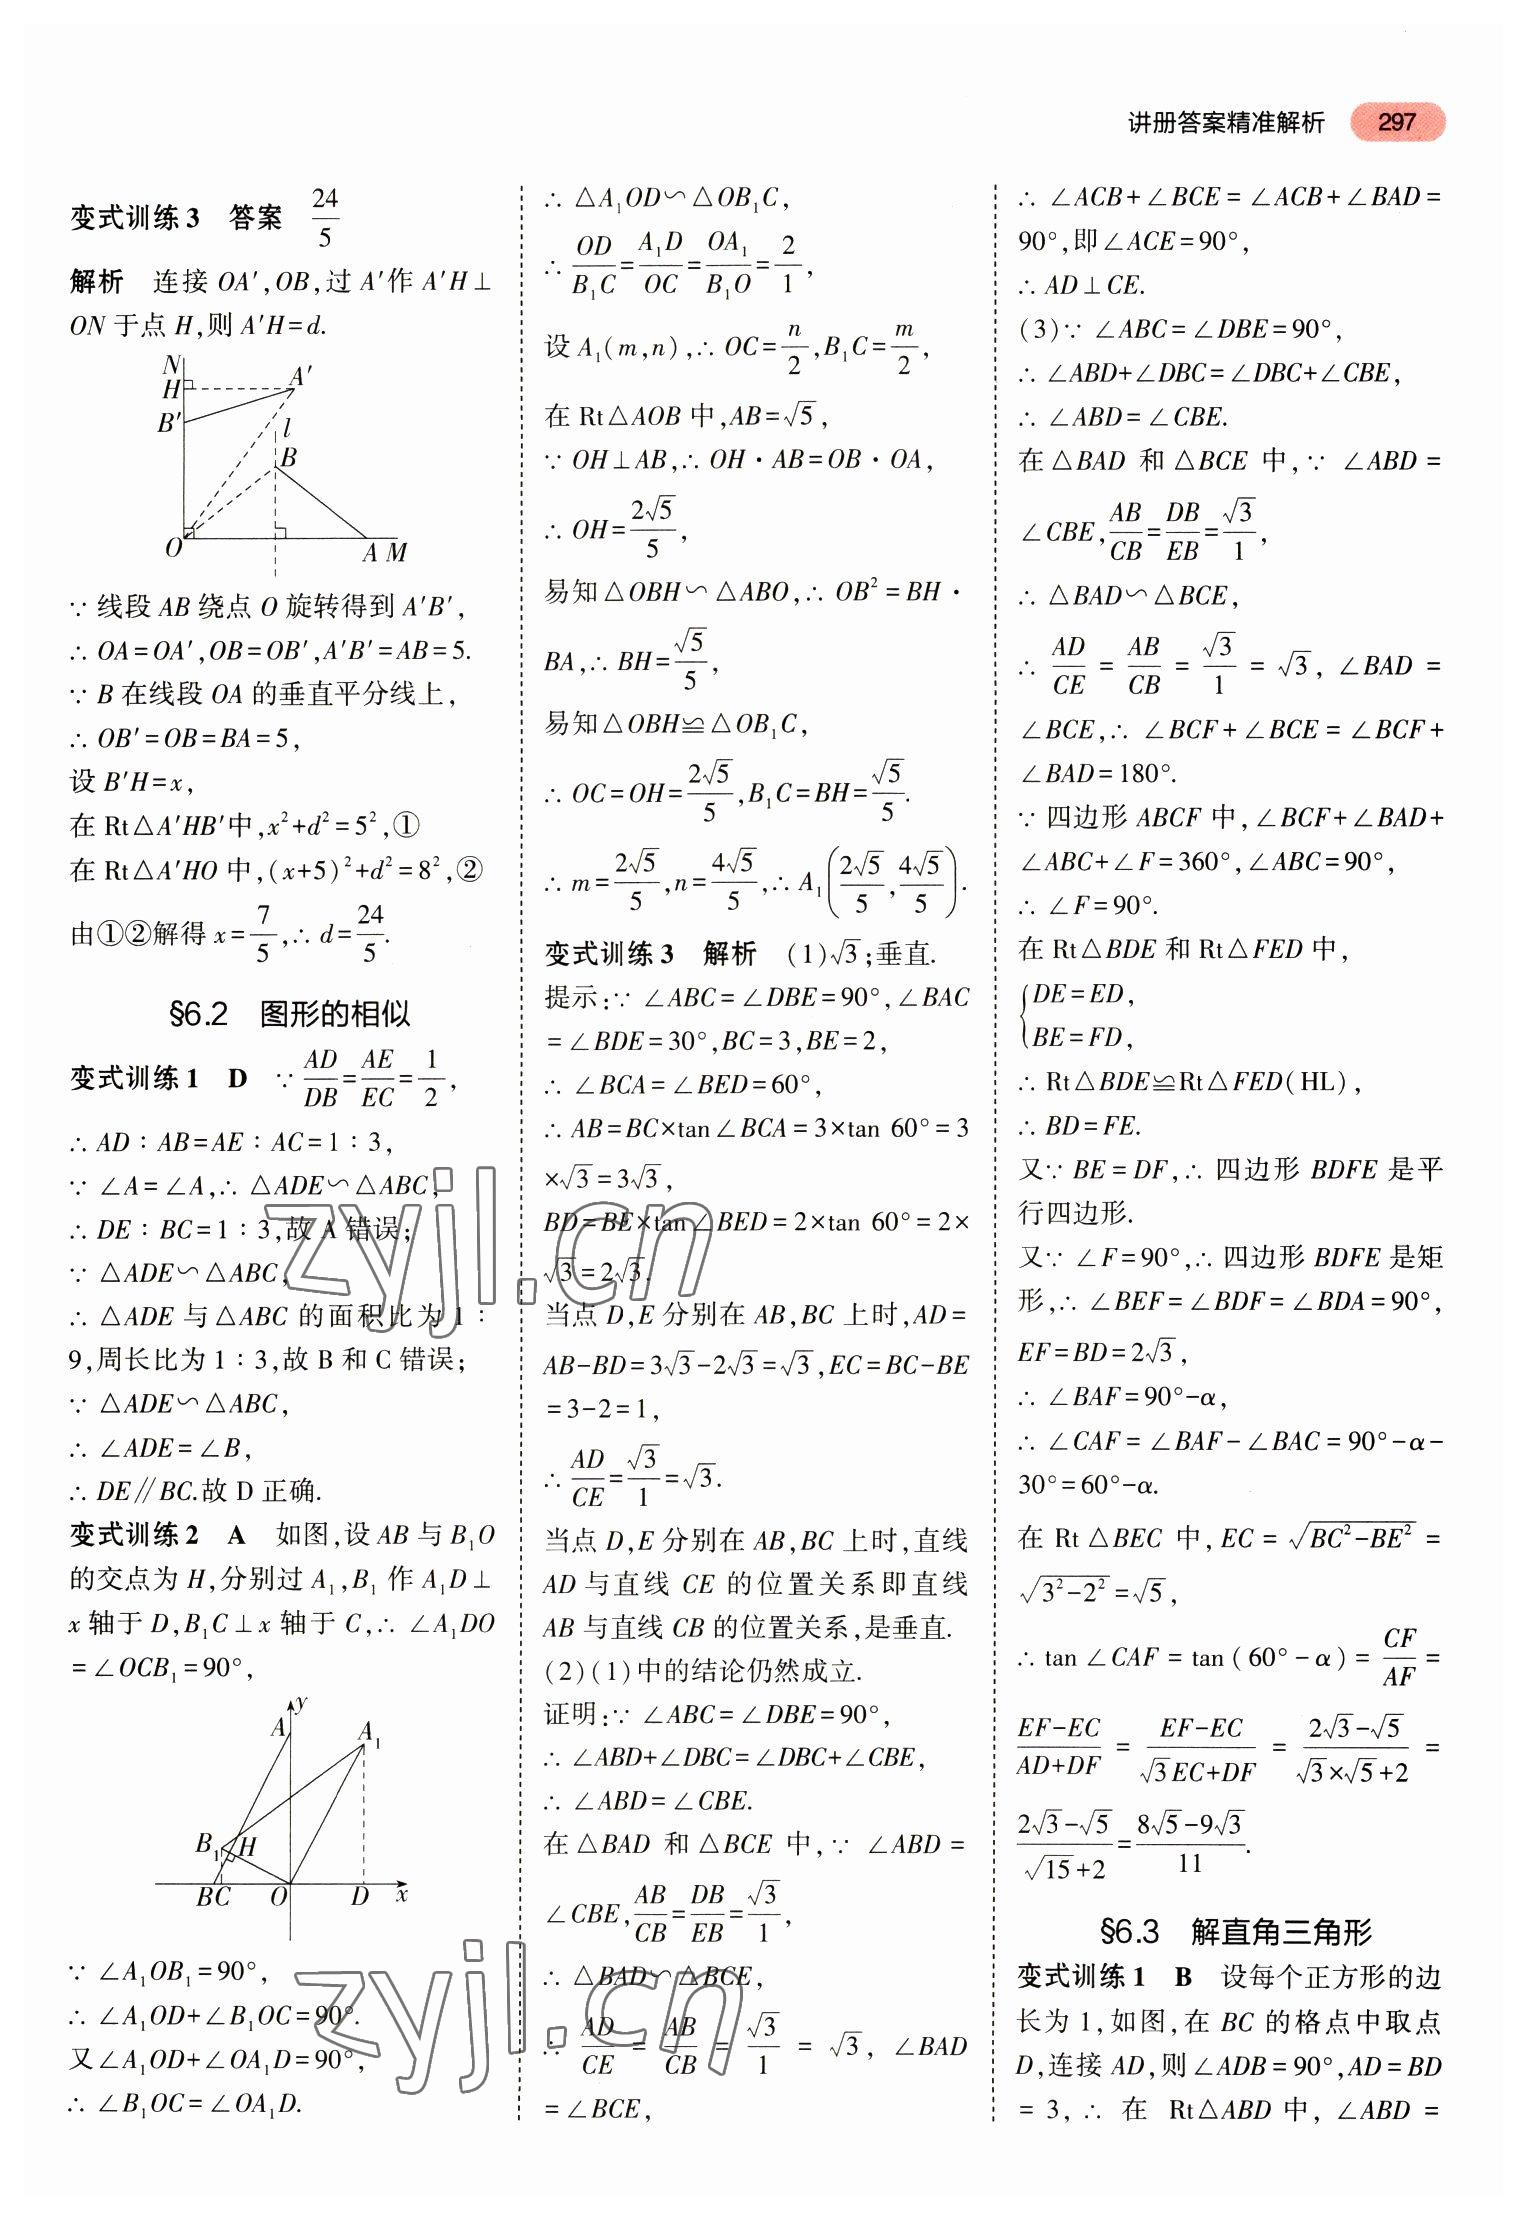 讲册答案精准解析 297
变式训练3 答案 24/5
解析 连接 OA′,OB,过 A′作 A′H⊥
ON 于点 H,则 A′H=d.
N
H
A′
B′
l
B
O
A M
∵ 线段 AB 绕点 O 旋转得到 A′B′,
∴ OA=OA′,OB=OB′,A′B′=AB=5.
∵ B 在线段 OA 的垂直平分线上,
∴ OB′=OB=BA=5,
设 B′H=x,
在 Rt△A′HB′中,x²+d²=5²,①
在 Rt△A′HO 中,(x+5)²+d²=8²,②
由①②解得 x=7/5,∴ d=24/5.
§6.2 图形的相似
变式训练1 D ∵ AD/DB=AE/EC=1/2,
∴ AD∶AB=AE∶AC=1∶3,
∵ ∠A=∠A,∴ △ADE∽△ABC,
∴ DE∶BC=1∶3,故 A 错误;
∵ △ADE∽△ABC,
∴ △ADE 与△ABC 的面积比为 1∶
9,周长比为 1∶3,故 B 和 C 错误;
∵ △ADE∽△ABC,
∴ ∠ADE=∠B,
∴ DE∥BC.故 D 正确.
变式训练2 A 如图,设 AB 与 B₁O
的交点为 H,分别过 A₁,B₁ 作 A₁D⊥
x 轴于 D,B₁C⊥x 轴于 C,∴ ∠A₁DO
=∠OCB₁=90°,
y
A
A₁
B₁
H
B C O D x
∵ ∠A₁OB₁=90°,
∴ ∠A₁OD+∠B₁OC=90°.
又∠A₁OD+∠OA₁D=90°,
∴ ∠B₁OC=∠OA₁D.
∴ △A₁OD∽△OB₁C,
∴ OD/B₁C=A₁D/OC=OA₁/B₁O=2/1,
设 A₁(m,n),∴ OC=n/2,B₁C=m/2,
在 Rt△AOB 中,AB=√5,
∵ OH⊥AB,∴ OH·AB=OB·OA,
∴ OH=2√5/5,
易知△OBH∽△ABO,∴ OB²=BH·
BA,∴ BH=√5/5,
易知△OBH≌△OB₁C,
∴ OC=OH=2√5/5,B₁C=BH=√5/5.
∴ m=2√5/5,n=4√5/5,∴ A₁(2√5/5,4√5/5).
变式训练3 解析 (1)√3;垂直.
提示:∵ ∠ABC=∠DBE=90°,∠BAC
=∠BDE=30°,BC=3,BE=2,
∴ ∠BCA=∠BED=60°,
∴ AB=BC×tan∠BCA=3×tan 60°=3
×√3=3√3,
BD=BE×tan∠BED=2×tan 60°=2×
√3=2√3.
当点 D,E 分别在 AB,BC 上时,AD=
AB-BD=3√3-2√3=√3,EC=BC-BE
=3-2=1,
∴ AD/CE=√3/1=√3.
当点 D,E 分别在 AB,BC 上时,直线
AD 与直线 CE 的位置关系即直线
AB 与直线 CB 的位置关系,是垂直.
(2)(1)中的结论仍然成立.
证明:∵ ∠ABC=∠DBE=90°,
∴ ∠ABD+∠DBC=∠DBC+∠CBE,
∴ ∠ABD=∠CBE.
在△BAD 和△BCE 中,∵ ∠ABD=
∠CBE,AB/CB=DB/EB=√3/1,
∴ △BAD∽△BCE,
∴ AD/CE=AB/CB=√3/1=√3,∠BAD
=∠BCE,
∴ ∠ACB+∠BCE=∠ACB+∠BAD=
90°,即∠ACE=90°,
∴ AD⊥CE.
(3)∵ ∠ABC=∠DBE=90°,
∴ ∠ABD+∠DBC=∠DBC+∠CBE,
∴ ∠ABD=∠CBE.
在△BAD 和△BCE 中,∵ ∠ABD=
∠CBE,AB/CB=DB/EB=√3/1,
∴ △BAD∽△BCE,
∴ AD/CE=AB/CB=√3/1=√3,∠BAD=
∠BCE,∴ ∠BCF+∠BCE=∠BCF+
∠BAD=180°.
∵ 四边形 ABCF 中,∠BCF+∠BAD+
∠ABC+∠F=360°,∠ABC=90°,
∴ ∠F=90°.
在 Rt△BDE 和 Rt△FED 中,
{DE=ED,
BE=FD,
∴ Rt△BDE≌Rt△FED(HL),
∴ BD=FE.
又∵ BE=DF,∴ 四边形 BDFE 是平
行四边形.
又∵ ∠F=90°,∴ 四边形 BDFE 是矩
形,∴ ∠BEF=∠BDF=∠BDA=90°,
EF=BD=2√3,
∴ ∠BAF=90°-α,
∴ ∠CAF=∠BAF-∠BAC=90°-α-
30°=60°-α.
在 Rt△BEC 中,EC=√(BC²-BE²)=
√(3²-2²)=√5,
∴ tan∠CAF=tan(60°-α)=CF/AF=
(EF-EC)/(AD+DF)=(EF-EC)/(√3EC+DF)=(2√3-√5)/(√3×√5+2)=
(2√3-√5)/(√15+2)=(8√5-9√3)/11.
§6.3 解直角三角形
变式训练1 B 设每个正方形的边
长为 1,如图,在 BC 的格点中取点
D,连接 AD,则∠ADB=90°,AD=BD
=3,∴ 在 Rt△ABD 中,∠ABD=
zyjl.cn
zyjl.cn